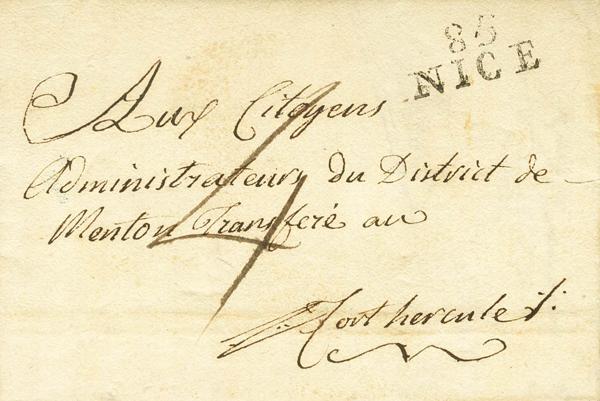 85
NICE
Aux Citoyens
Administrateurs du District de
Menton Transferé au
4
Fort hercule